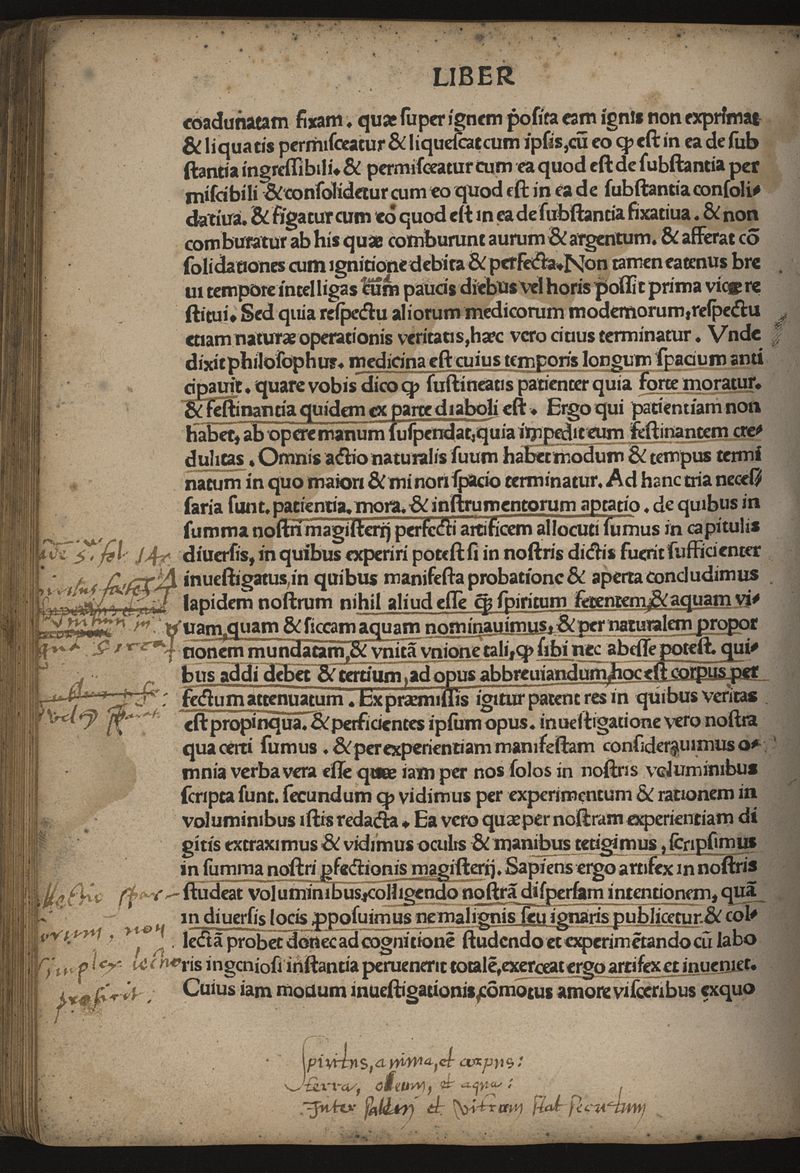 LIBER
coadunatam fixam. quæ ſuper ignem poſita eam ignis non exprimat
& liquatis permiſceatur & liqueſcat cum ipſis, cū eo ꝙ eſt in ea de ſub
ſtantia ingreſſibili. & permiſceatur cum ea quod eſt de ſubſtantia per
miſcibili & conſolidetur cum eo quod eſt in ea de ſubſtantia conſoli⸗
datiua. & figatur cum eo quod eſt in ea de ſubſtantia fixatiua. & non
comburatur ab his quæ comburunt aurum & argentum. & afferat cō
ſolidationes cum ignitione debita & perfecta. Non tamen eatenus bre
ui tempore intelligas cum paucis diebus vel horis poſſit prima vice re
ſtitui. Sed quia reſpectu aliorum medicorum modernorum, reſpectu
etiam naturæ operationis veritatis, hæc vero citius terminatur. Vnde
dixit philoſophus. medicina eſt cuius temporis longum ſpacium anti
cipauit. quare vobis dico ꝙ ſuſtineatis patienter quia forte moratur.
& feſtinantia quidem ex parte diaboli eſt. Ergo qui patientiam non
habet, ab opere manum ſuſpendat, quia impedit eum feſtinantem cre⸗
dulitas. Omnis actio naturalis ſuum habet modum & tempus termi
natum in quo maiori & minori ſpacio terminatur. Ad hanc tria neceſ⸗
ſaria ſunt. patientia. mora. & inſtrumentorum aptatio. de quibus in
ſumma noſtri magiſterij perfecti artificem allocuti ſumus in capitulis
diuerſis, in quibus experiri poteſt ſi in noſtris dictis fuerit ſufficienter
inueſtigatus, in quibus manifeſta probatione & aperta concludimus
lapidem noſtrum nihil aliud eſſe q̄ȝ ſpiritum fetentem, & aquam vi⸗
uam, quam & ſiccam aquam nominauimus, & per naturalem propor
tionem mundatam, & vnitā vnione tali, ꝙ ſibi nec abeſſe poteſt. qui⸗
bus addi debet & tertium, ad opus abbreuiandum, hoc eſt corpus per
fectum attenuatum. Ex præmiſſis igitur patent res in quibus veritas
eſt propinqua. & perficientes ipſum opus. inueſtigatione vero noſtra
qua certi ſumus. & per experientiam manifeſtam conſiderauimus o⸗
mnia verba vera eſſe quæ iam per nos ſolos in noſtris voluminibus
ſcripta ſunt. ſecundum ꝙ vidimus per experimentum & rationem in
voluminibus iſtis redacta. Ea vero quæ per noſtram experientiam di
gitis extraximus & vidimus oculis & manibus tetigimus, ſcripſimus
in ſumma noſtri ꝑfectionis magiſterij. Sapiens ergo artifex in noſtris
ſtudeat voluminibus, colligendo noſtrā diſperſam intentionem, quā
in diuerſis locis ꝓpoſuimus ne malignis ſeu ignaris publicetur. & col⸗
lectā probet donec ad cognitionē ſtudendo et experimētando cū labo
ris ingenioſi inſtantia peruenerit totalē, exerceat ergo artifex et inueniet.
Cuius iam modum inueſtigationis, cōmotus amore viſceribus exquo
Lectio ſpar-
orum, non
ſimplex lectio
proſerit.
Spiritus, anima, et corpus:
terra, oleum, et aqua:
Inter ſallem et Vitrum ſtat ſecretum